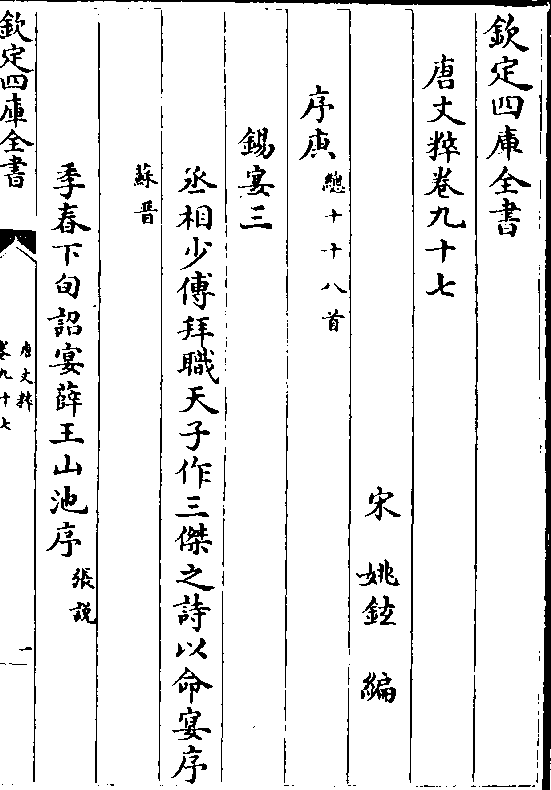 欽定四庫全書
唐文粹卷九十七
宋 姚鉉 編
序庚 總十十八首
錫宴三
丞相少傅拜職天子作三傑之詩以命宴序
蘇晋
季春下旬詔宴薛王山池序 張説
欽定四庫全書
唐文粹
卷九十七
一